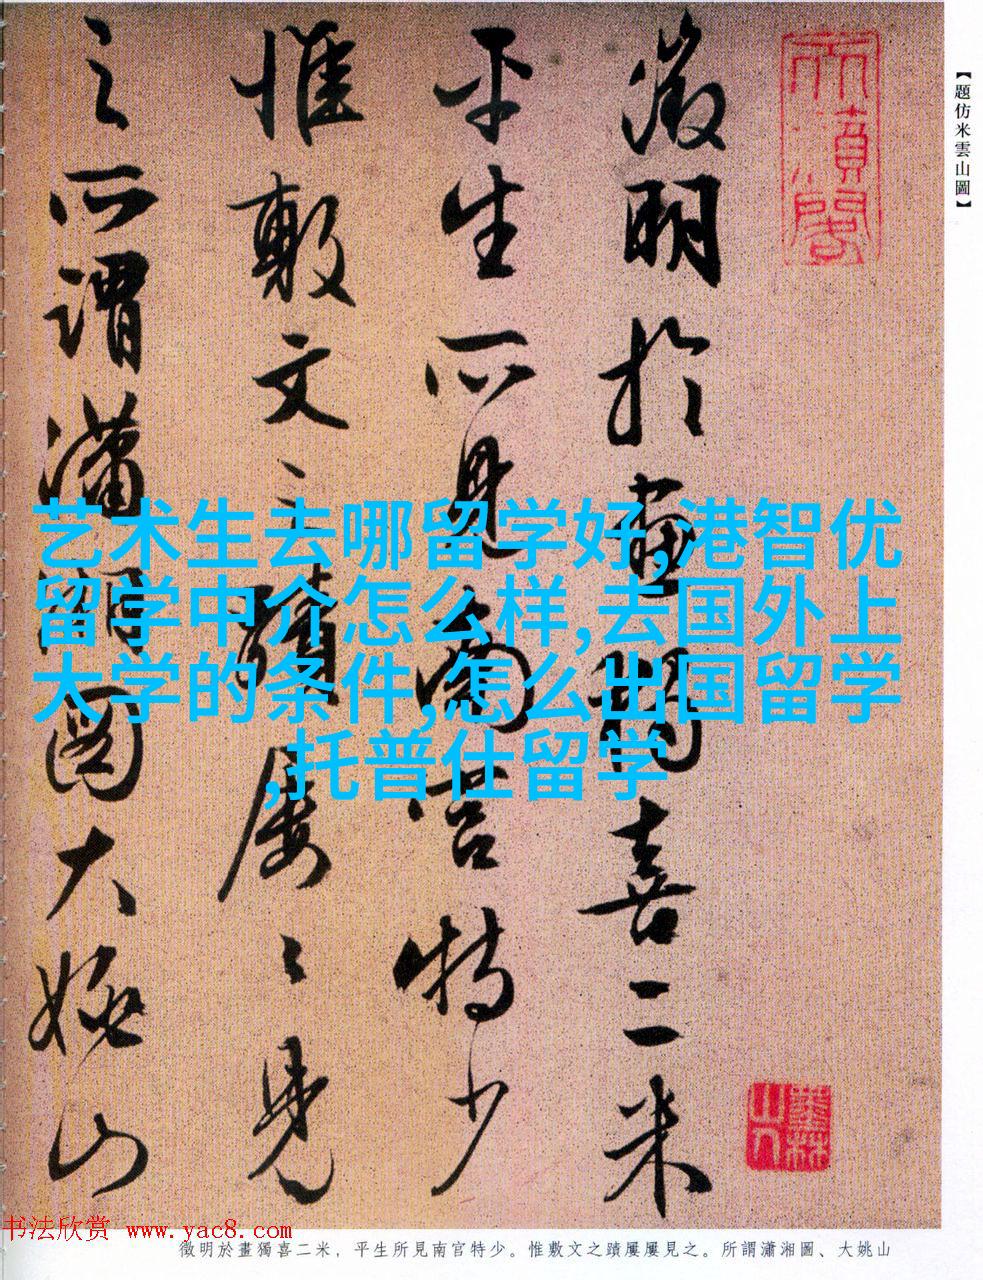 【題仿米雲山圖】
徵明於畫獨喜二米
平生所見南宮特少
惟敷文之蹟屢〻見
之所謂瀟湘圖大姚山
艺术生去哪留学好,港智优
留学中介怎么样,去国外上
大学的条件,怎么出国留学
,托普仕留学
书法欣赏 www.yac8.com
徵明於畫獨喜二米，平生所見南官特少。惟敷文之蹟屢屢見之。所謂瀟湘圖、大姚山